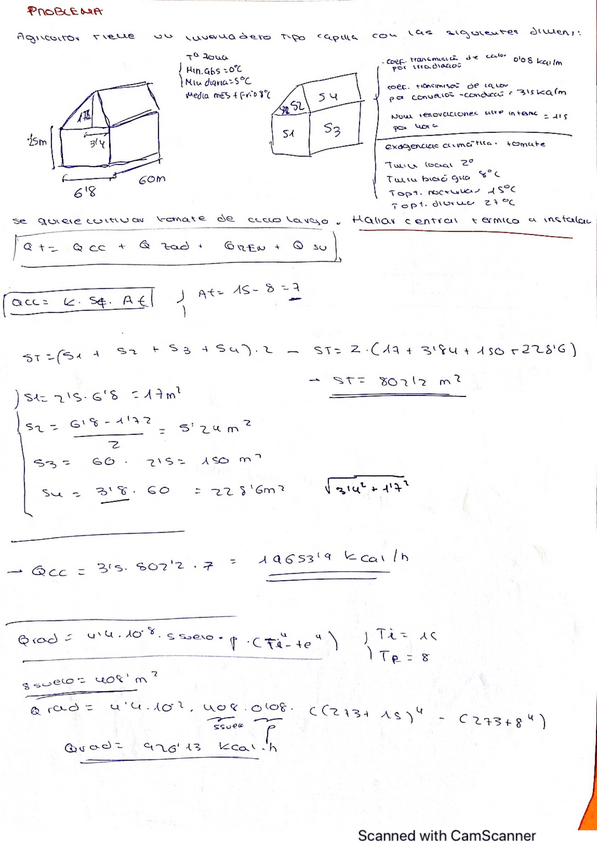 PROBLEMA
Agricultor tiene un invernadero tipo capilla con las siguientes dimens:
Tª zona
Min. abs = 0ºC
Min diaria = 5ºC
Media mes + frio 8ºC
coef. transmisió de calor por irradiación 0'08 kcal/m
coef. transmisió de calor por convecció-conducció: 3'5 kcal/m
Num renovaciones aire interno por hora = 1'5
exigencias climáticas. tomate
T min letal 2º
T min biológica 8ºC
T opt. nocturna 15ºC
T opt. diurna 27ºC
1'7
3'4
2'5m
6'8
60m
S2
S4
S1
S3
se quiere cultivar tomate de ciclo largo. Hallar central termica a instalar
Qt = Qcc + Q rad + QREN + Q su
Qcc = K. Sf. At
At = 15 - 8 = 7
ST = (S1 + S2 + S3 + S4). 2 - ST = 2.(17 + 3'84 + 150 + 228'6)
→ ST = 802'2 m²
S1 = 2'5. 6'8 = 17m²
S2 = 6'8 - 1'72 / 2 = 5'24 m²
S3 = 60. 2'5 = 150 m²
S4 = 3'8. 60 = 228'6m²
√3'4² + 1'7²
→ Qcc = 3'5. 802'2. 7 = 19653'9 kcal/h
Qrad = 4'4. 10⁻⁸. Ssuelo. p. (Ti⁴ - te⁴)
Ti = 15
Te = 8
Ssuelo = 408' m²
Q rad = 4'4. 10², 408. 0'08. ((273 + 15)⁴ - (273 + 8⁴)
Ssuelo
p
Qrad = 926'13 kcal.h
Scanned with CamScanner